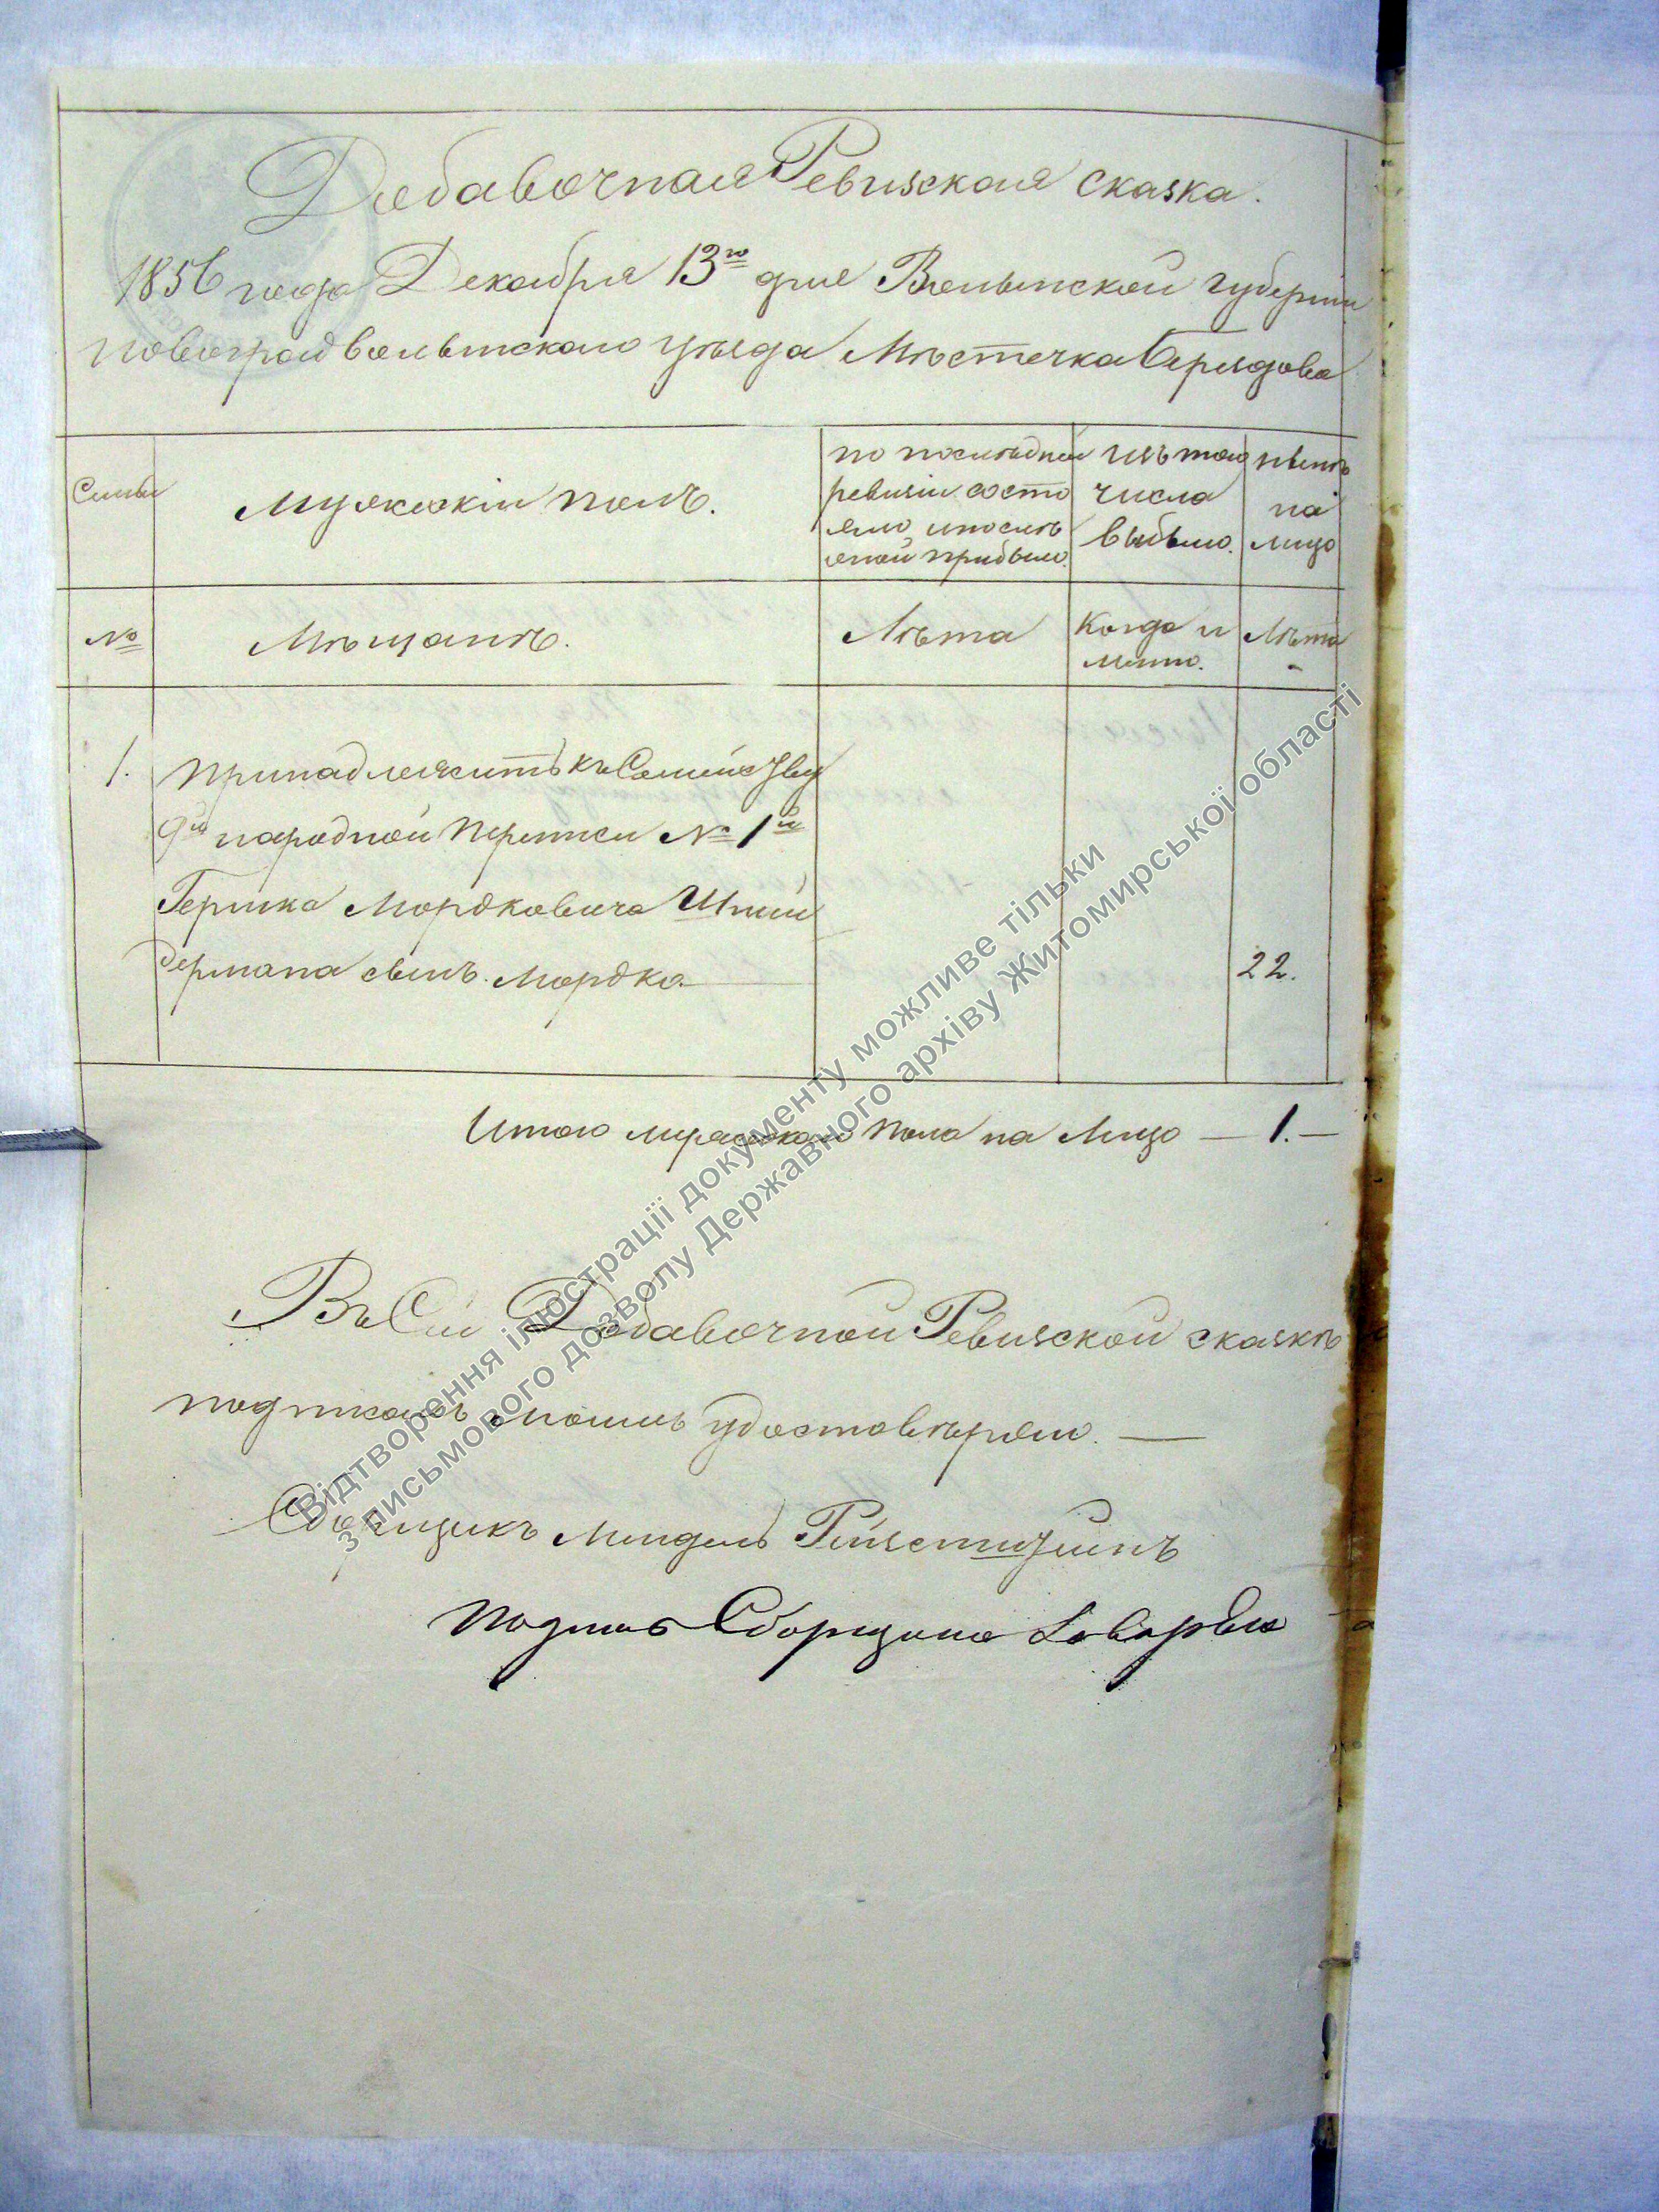 Добавочная Ревизская сказка.
1856 года Декабря 13го дня Волынской губернии
Новоградволынского уѣзда Мѣстечка Берездова
Семьи
Мужескій полъ.
по послѣдней
ревизіи состо
яло и послѣ
оной прибыло.
изъ того
числа
выбыло.
нынѣ
на
лицо
№
Мѣщанъ.
Лѣта
Когда и
Лѣта
1. принадлежитъ къ Семейству
9й народной переписи № 1й
Гершка Мордковича Шней
дермана сынъ Мордко 22.
Итого мужеского пола на Лицо — 1. —
Въ Сей Добавочной Ревизской сказкѣ
удостовѣряю. —
Сборщикъ Мендель
Сборщика
Відтворення ілюстрації документу можливе тільки
з письмового дозволу Державного архіву Житомирської області